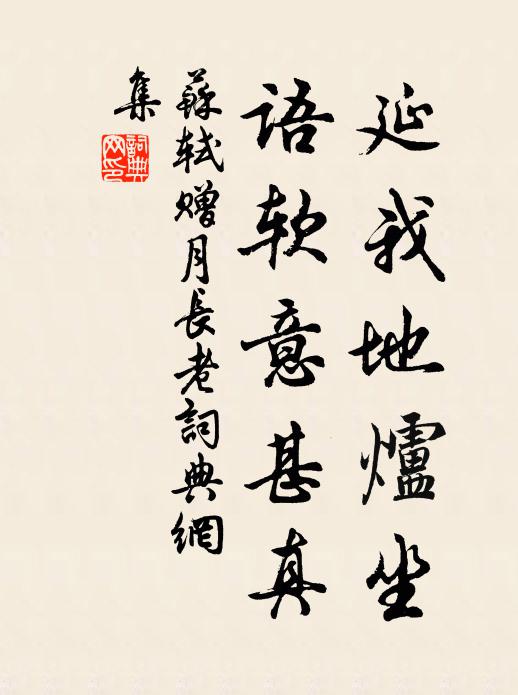 延我地爐坐
語軟意甚真
蘇軾贈月長老詞典網
集
詞典
网印